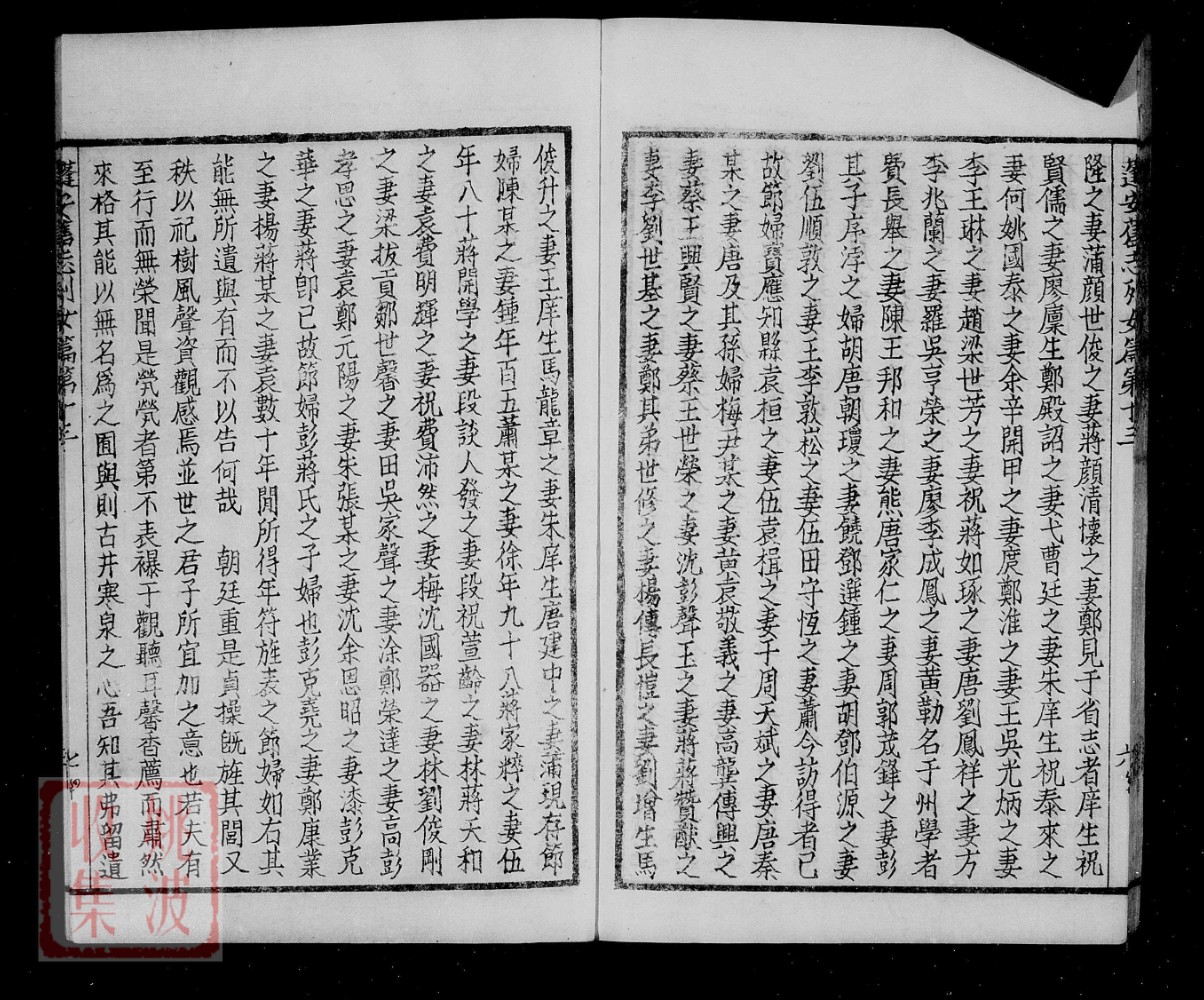 蓬安舊志列女篇第十三
六
隆之妻蒲顏世俊之妻蔣顏清懷之妻鄭見于省志者庠生祝
賢儒之妻廖廩生鄭殿詔之妻弋曹廷之妻朱庠生祝泰來之
妻何姚國泰之妻余辛開甲之妻庹鄭淮之妻王吳光炳之妻
李王琳之妻趙梁世芳之妻祝蔣如琢之妻唐劉鳳祥之妻方
李兆蘭之妻羅吳亨榮之妻廖李成鳳之妻黃勒名于州學者
費長舉之妻陳王邦和之妻熊唐家仁之妻周郭茂鋒之妻彭
其子庠浡之婦胡唐朝瓊之妻饒鄧選鍾之妻胡鄧伯源之妻
劉伍順敦之妻王李敦崧之妻伍田守恆之妻蕭今訪得者已
故節婦寶應知縣袁桓之妻伍袁楫之妻于周天斌之妻唐秦
某之妻唐及其孫婦梅尹某之妻黃袁敬義之妻高龔傳興之
妻蔡王興賢之妻蔡王世榮之妻沈彭聲玉之妻蔣蔣贊猷之
妻李劉世基之妻鄭其弟世修之妻楊傳長愷之妻劉增生馬
俊升之妻王庠生馬龍章之妻朱庠生唐建中之妻蒲現存節
婦陳某之妻鍾年百五蕭某之妻徐年九十八蔣家粹之妻伍
年八十蔣開學之妻段談人發之妻段祝萱齡之妻林蔣天和
之妻袁費明輝之妻祝費沛然之妻梅沈國器之妻林劉俊剛
之妻梁拔貢鄒世馨之妻田吳家聲之妻涂鄭榮達之妻高彭
孝思之妻袁鄭元陽之妻朱張某之妻沈余恩昭之妻漆彭克
華之妻蔣卽已故節婦彭蔣氏之子婦也彭克堯之妻鄭康業
之妻楊蔣某之妻袁數十年閒所得年符旌表之節婦如右其
能無所遺與有而不以告何哉　朝廷重是貞操旣旌其閭又
秩以祀樹風聲資觀感焉並世之君子所宜加之意也若夫有
至行而無榮聞是煢煢者第不表襮于觀聽耳馨香薦而肅然
來格其能以無名爲之囿與則古井寒泉之心吾知其弗留遺
蓬安舊志列女篇第十三
七
姚波收集